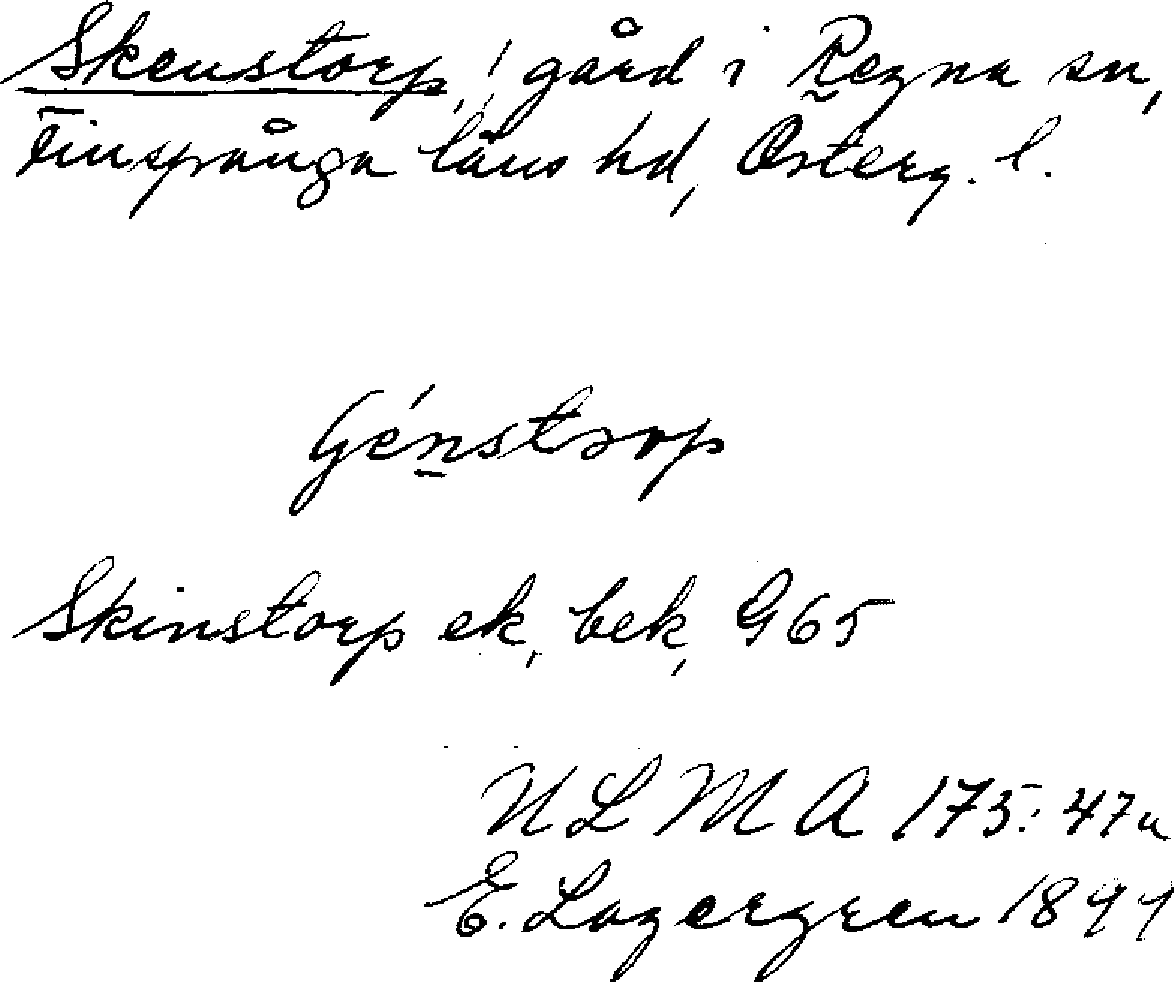 Skenstorp, gård i Regna sn,
Finspånga läns hd, Österg. l.
Génstrop
Skinstorp ek, bek, G65
ULMA 175:47a
E. Lagergren 1899